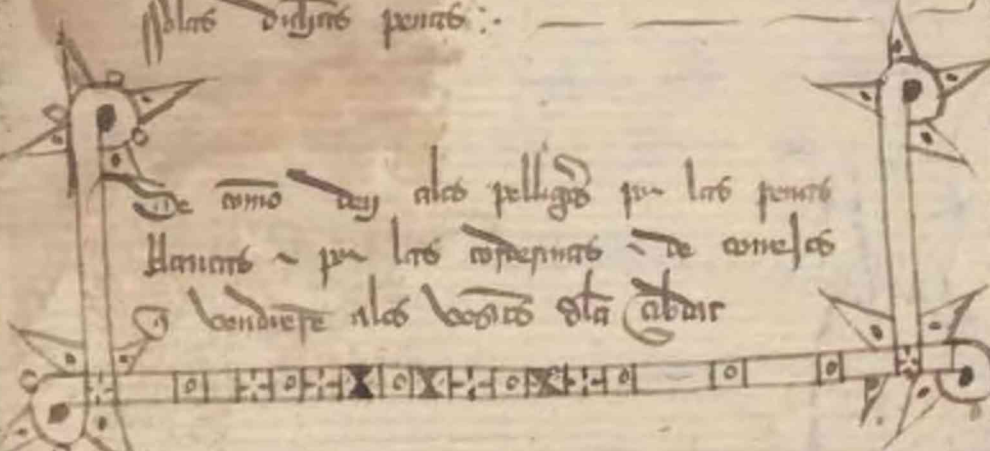 las dichas penas
De como den alos pelligos por las penas
blancas e por las corderinas e de conejos
q vendiere alos vesinos dla cibdat